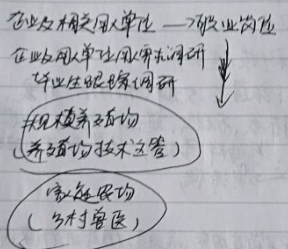 企业及相关用人单位 → 职业岗位
企业及用人单位用人需求调研
毕业生跟踪调研
规模养殖场
(养殖场技术主管)
家庭农场
(乡村兽医)